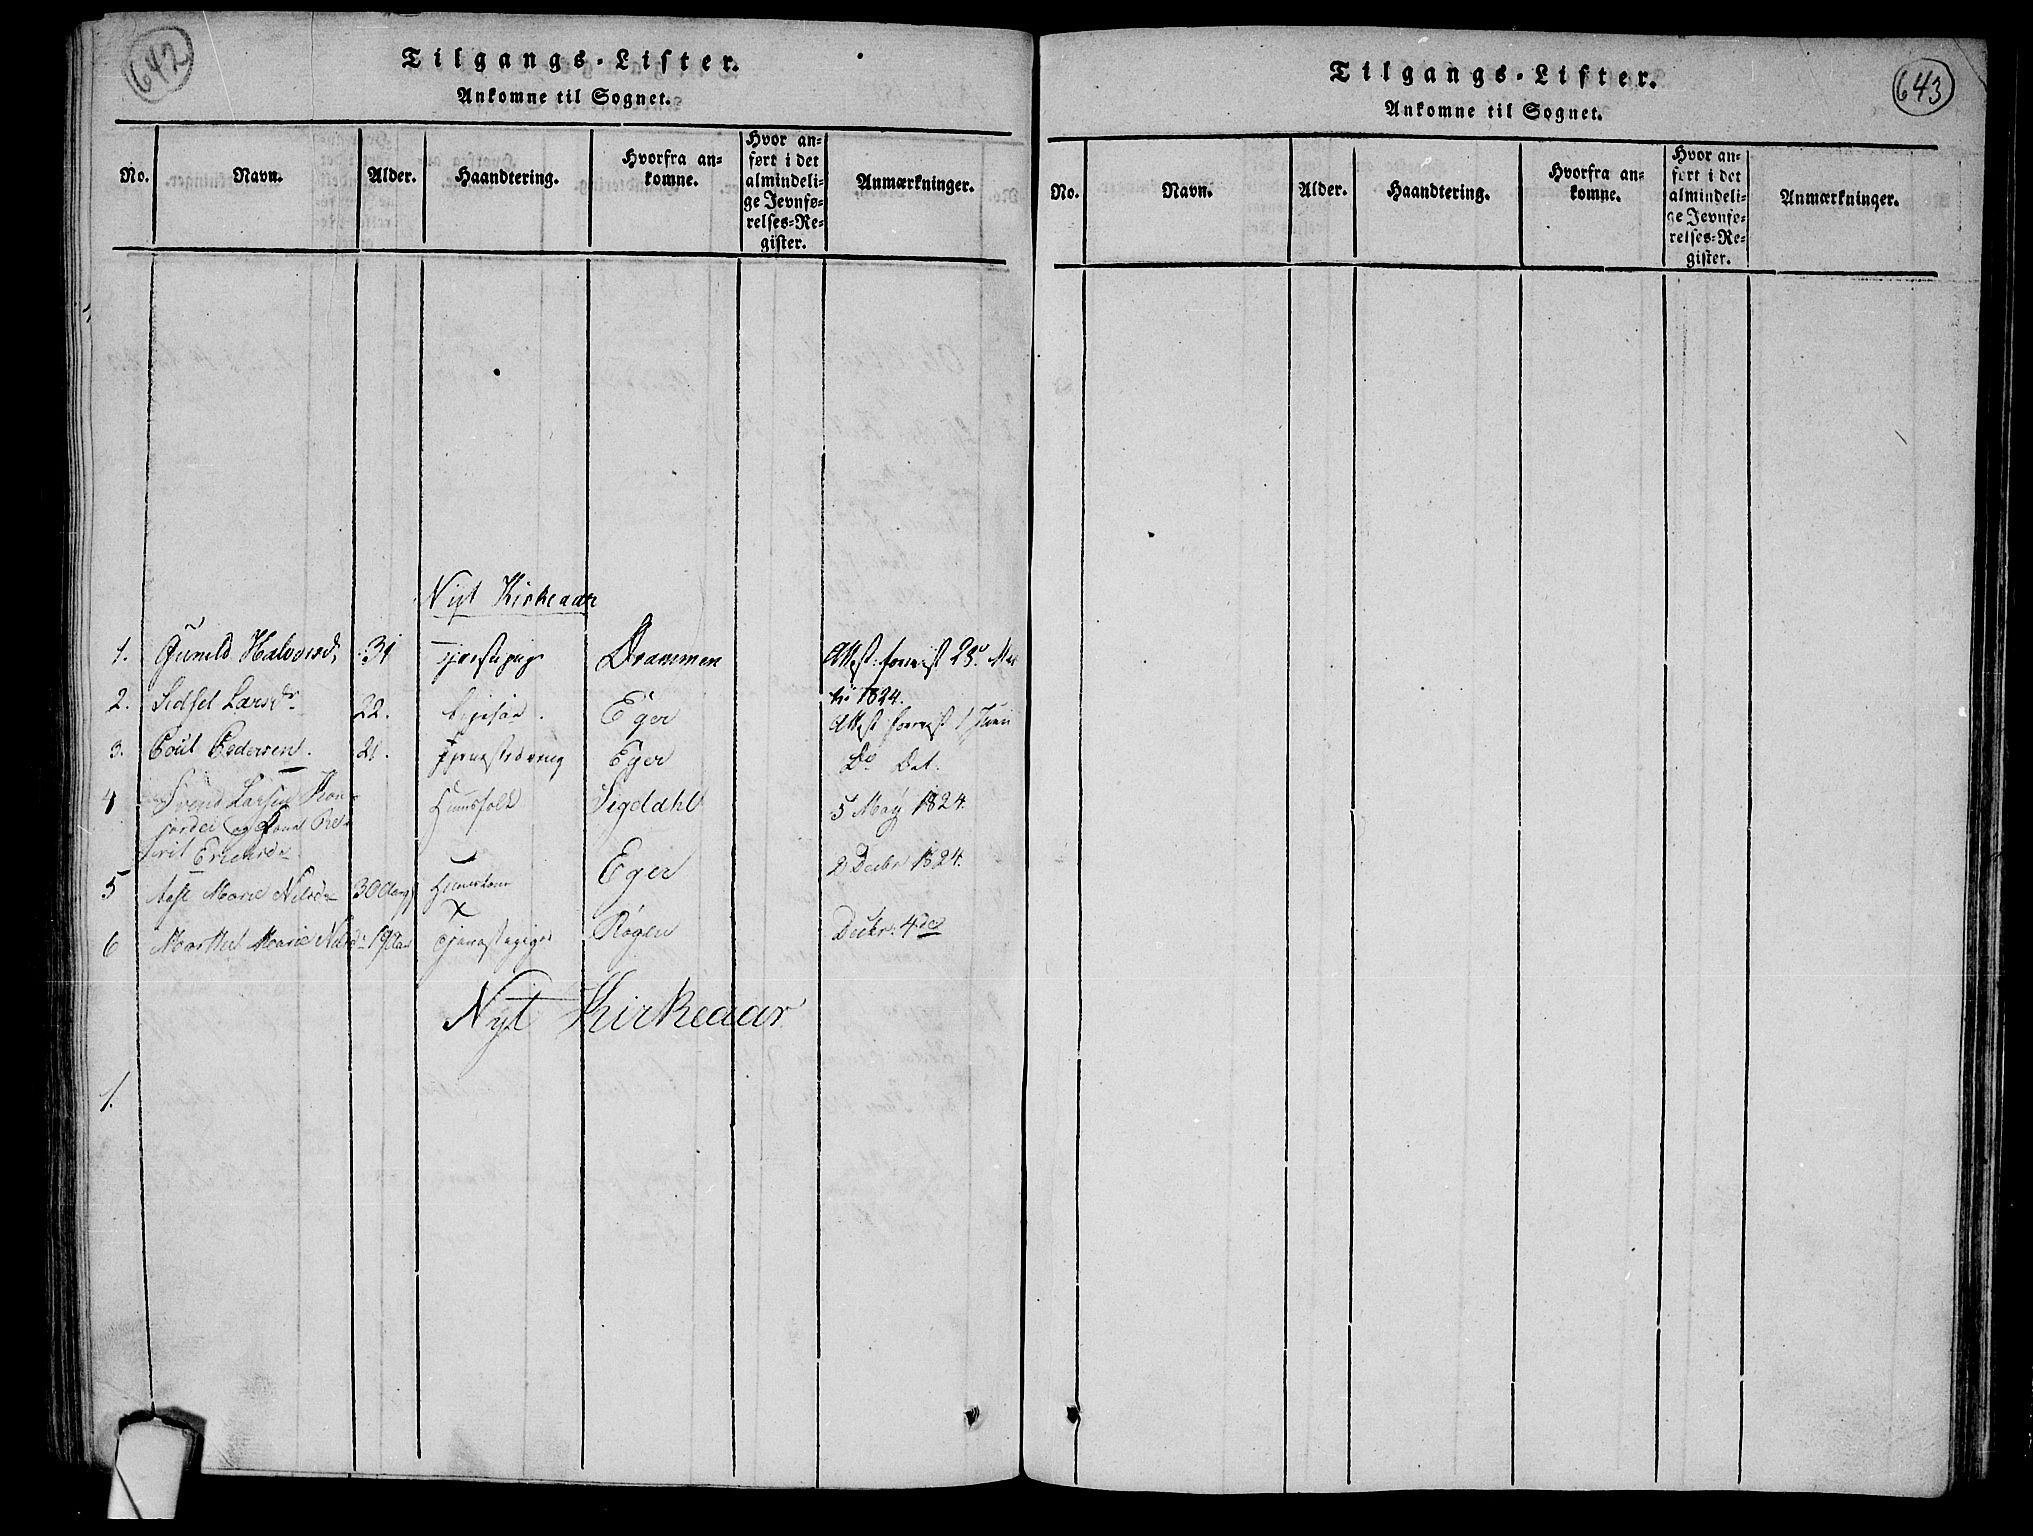 642
Tilgangs-Lister.
Ankomne til Sognet.
No. Navn. Alder. Haandtering. Hvorfra an=
komne. Hvor an=
ført i det
almindeli=
ge Jevnfø=
relses=Re=
gister. Anmærkninger.
Nyt Kirkeaar
1. Guneld Halvorsd. 31 Drammen Attest forevist 23.
1824.
2. Sidsel Larsdr 22. Eger Attest forevist 1 Juni
3. Poul Pedersen. 21. Eger Do Dat.
4 Svend Larsen Huusfolk Sigdahl 5 May 1824.
og Kone
5 Marie Nilsd 30 Aar Eger 2 Decbr 1824.
6 Marthe Marie Nilsd 19 Aar Tjenestepige Røgen Decbr. 4de
Nyt Kirkeaar
1.
643
Tilgangs-Lister.
Ankomne til Sognet.
No. Navn. Alder. Haandtering. Hvorfra an=
komne. Hvor an=
ført i det
almindeli=
ge Jevnfø=
relses=Re=
gister. Anmærkninger.